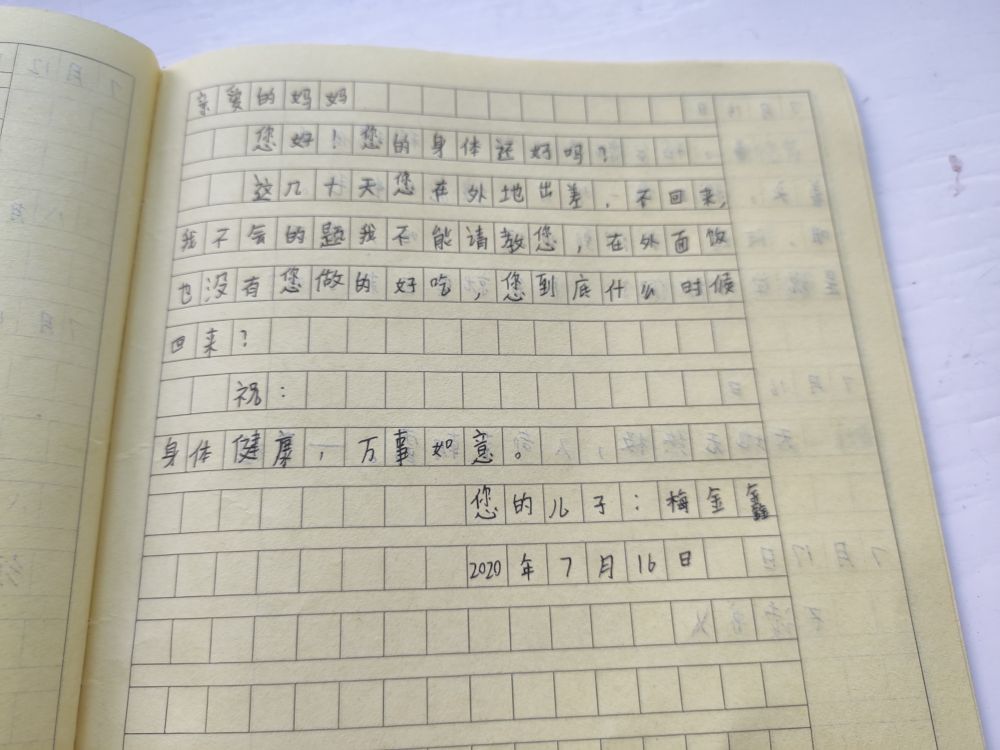 亲爱的妈妈
您好！您的身体还好吗？
这几十天您在外地出差，不回来，
我不会的题我不能请教您，在外面饭
也没有您做的好吃，您到底什么时候
回来？
祝：
身体健康，万事如意。
您的儿子：梅金鑫
2020年7月16日
7月12